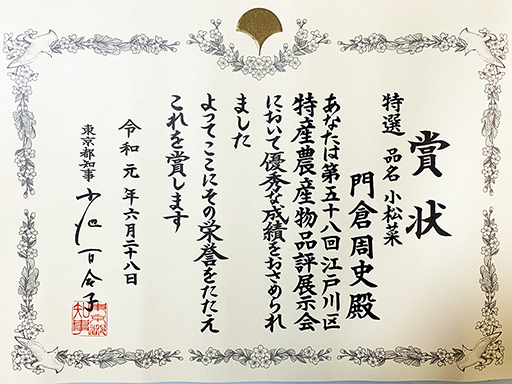 賞状
特選 品名 小松菜
門倉周史殿
あなたは第五十八回江戸川区
特産農産物品評展示会
において優秀な成績をおさめられ
ました
よってここにその栄誉をたたえ
これを賞します
令和元年六月二十八日
東京都知事 小池百合子
東京都知事